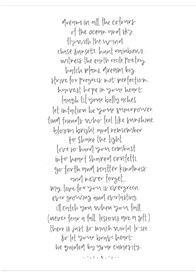 dream in all the colours
of the ocean and sky
fly with the wind
chase sunsets hunt rainbows
witness the earth exhale poetry
hatch plans dream big
strive for progress not perfection
harvest hope in your heart
laugh til your belly aches
let intuition be your superpower
find friends who feel like sunshine
bloom bright and remember
to share the light
love so hard you combust
into heart shaped confetti
go forth and scatter kindness
and never forget,
my love for you is evergreen
ever growing and evolving
i'll catch you when you fall
(never fear a fall, lessons are a gift)
there is just so much world to see
so let your brave heart
be guided by your curiosity